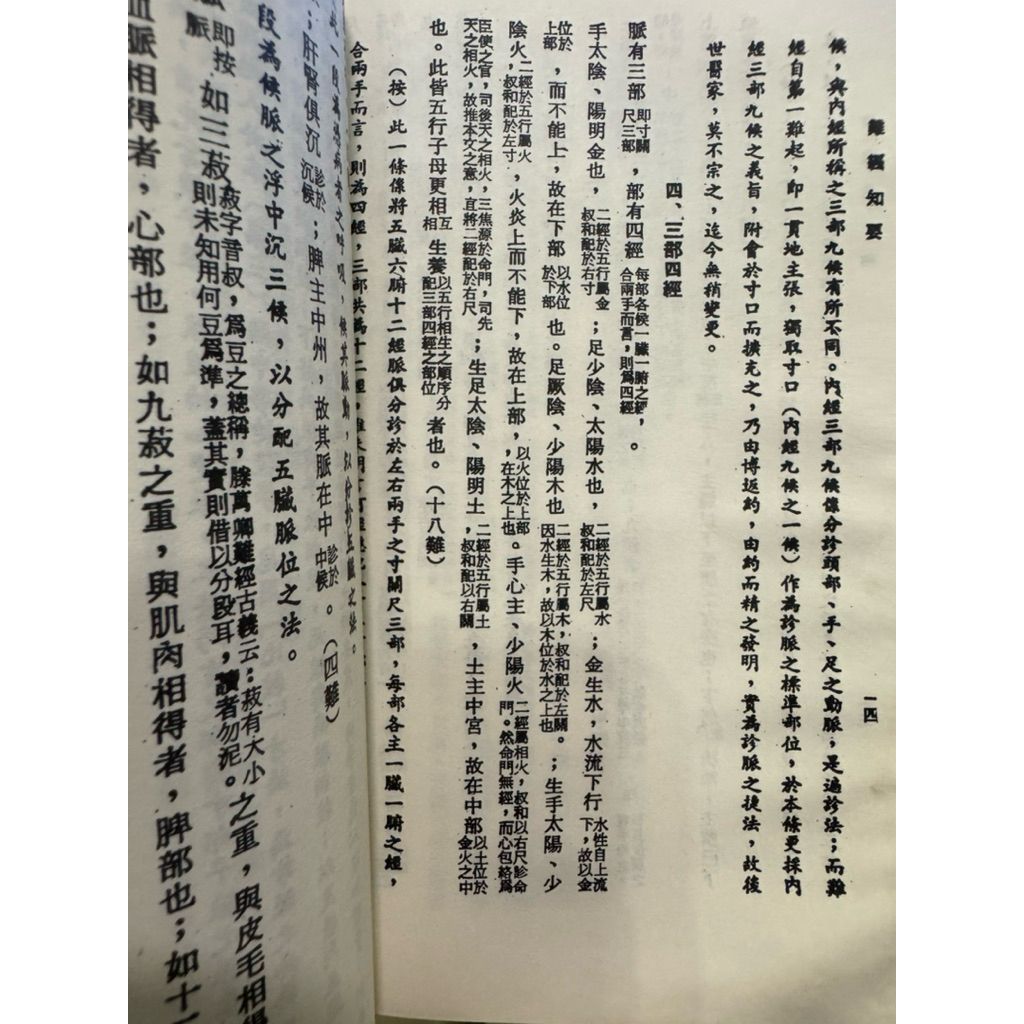 難經知要
一四
候，與內經所稱之三部九候有所不同。內經三部九候係分診頭部、手、足之動脈，是遍診法；而難
經自第一難起，即一貫地主張，獨取寸口（內經九候之一候）作為診脈之標準部位，於本條更採內
經三部九候之義旨，附會於寸口而擴充之，乃由博返約，由約而精之發明，實為診脈之捷法，故後
世醫家，莫不宗之，迄今無稍變更。
四、三部四經
脈有三部即寸關尺三部，部有四經每部各候一臟一腑之經，合兩手而言，則爲四經。
手太陰、陽明金也，二經於五行屬金叔和配於右寸；足少陰、太陽水也，二經於五行屬水叔和配於左尺；金生水，水流下行水性自上流下，故以金
位於上部，而不能上，故在下部以水位於下部也。足厥陰、少陽木也二經於五行屬木，叔和配於左關。因水生木，故以木位於水之上也；生手太陽、少
陰火，二經於五行屬火叔和配於左寸，火炎上而不能下，故在上部，以火位於上部在木之上也。手心主、少陽火二經屬相火，叔和以右尺診命門。然命門無經，而心包絡爲
臣使之官，司後天之相火，三焦源於命門，司先天之相火，故推本文之意，宜將二經配於右尺；生足太陰、陽明土二經於五行屬土，叔和配以右關，土主中宮，故在中部以土位於金火之中
也。此皆五行子母更相互相生養以五行相生之順序分配三部四經之部位者也。（十八難）
（按）此一條係將五臟六腑十二經脈俱分診於左右兩手之寸關尺三部，每部各主一臟一腑之經，
合兩手而言，則為四經，三部共為十二經，
；肝腎俱沉診於沉候；脾主中州，故其脈在中診於中候。（四難）
段為候脈之浮中沉三候，以分配五臟脈位之法。
即按 如三菽菽字音叔，爲豆之總稱，滕萬卿難經古義云：菽有大小則未知用何豆爲準，蓋其實則借以分段耳，讀者勿泥。之重，與皮毛相得
血脈相得者，心部也；如九菽之重，與肌肉相得者，脾部也；如十